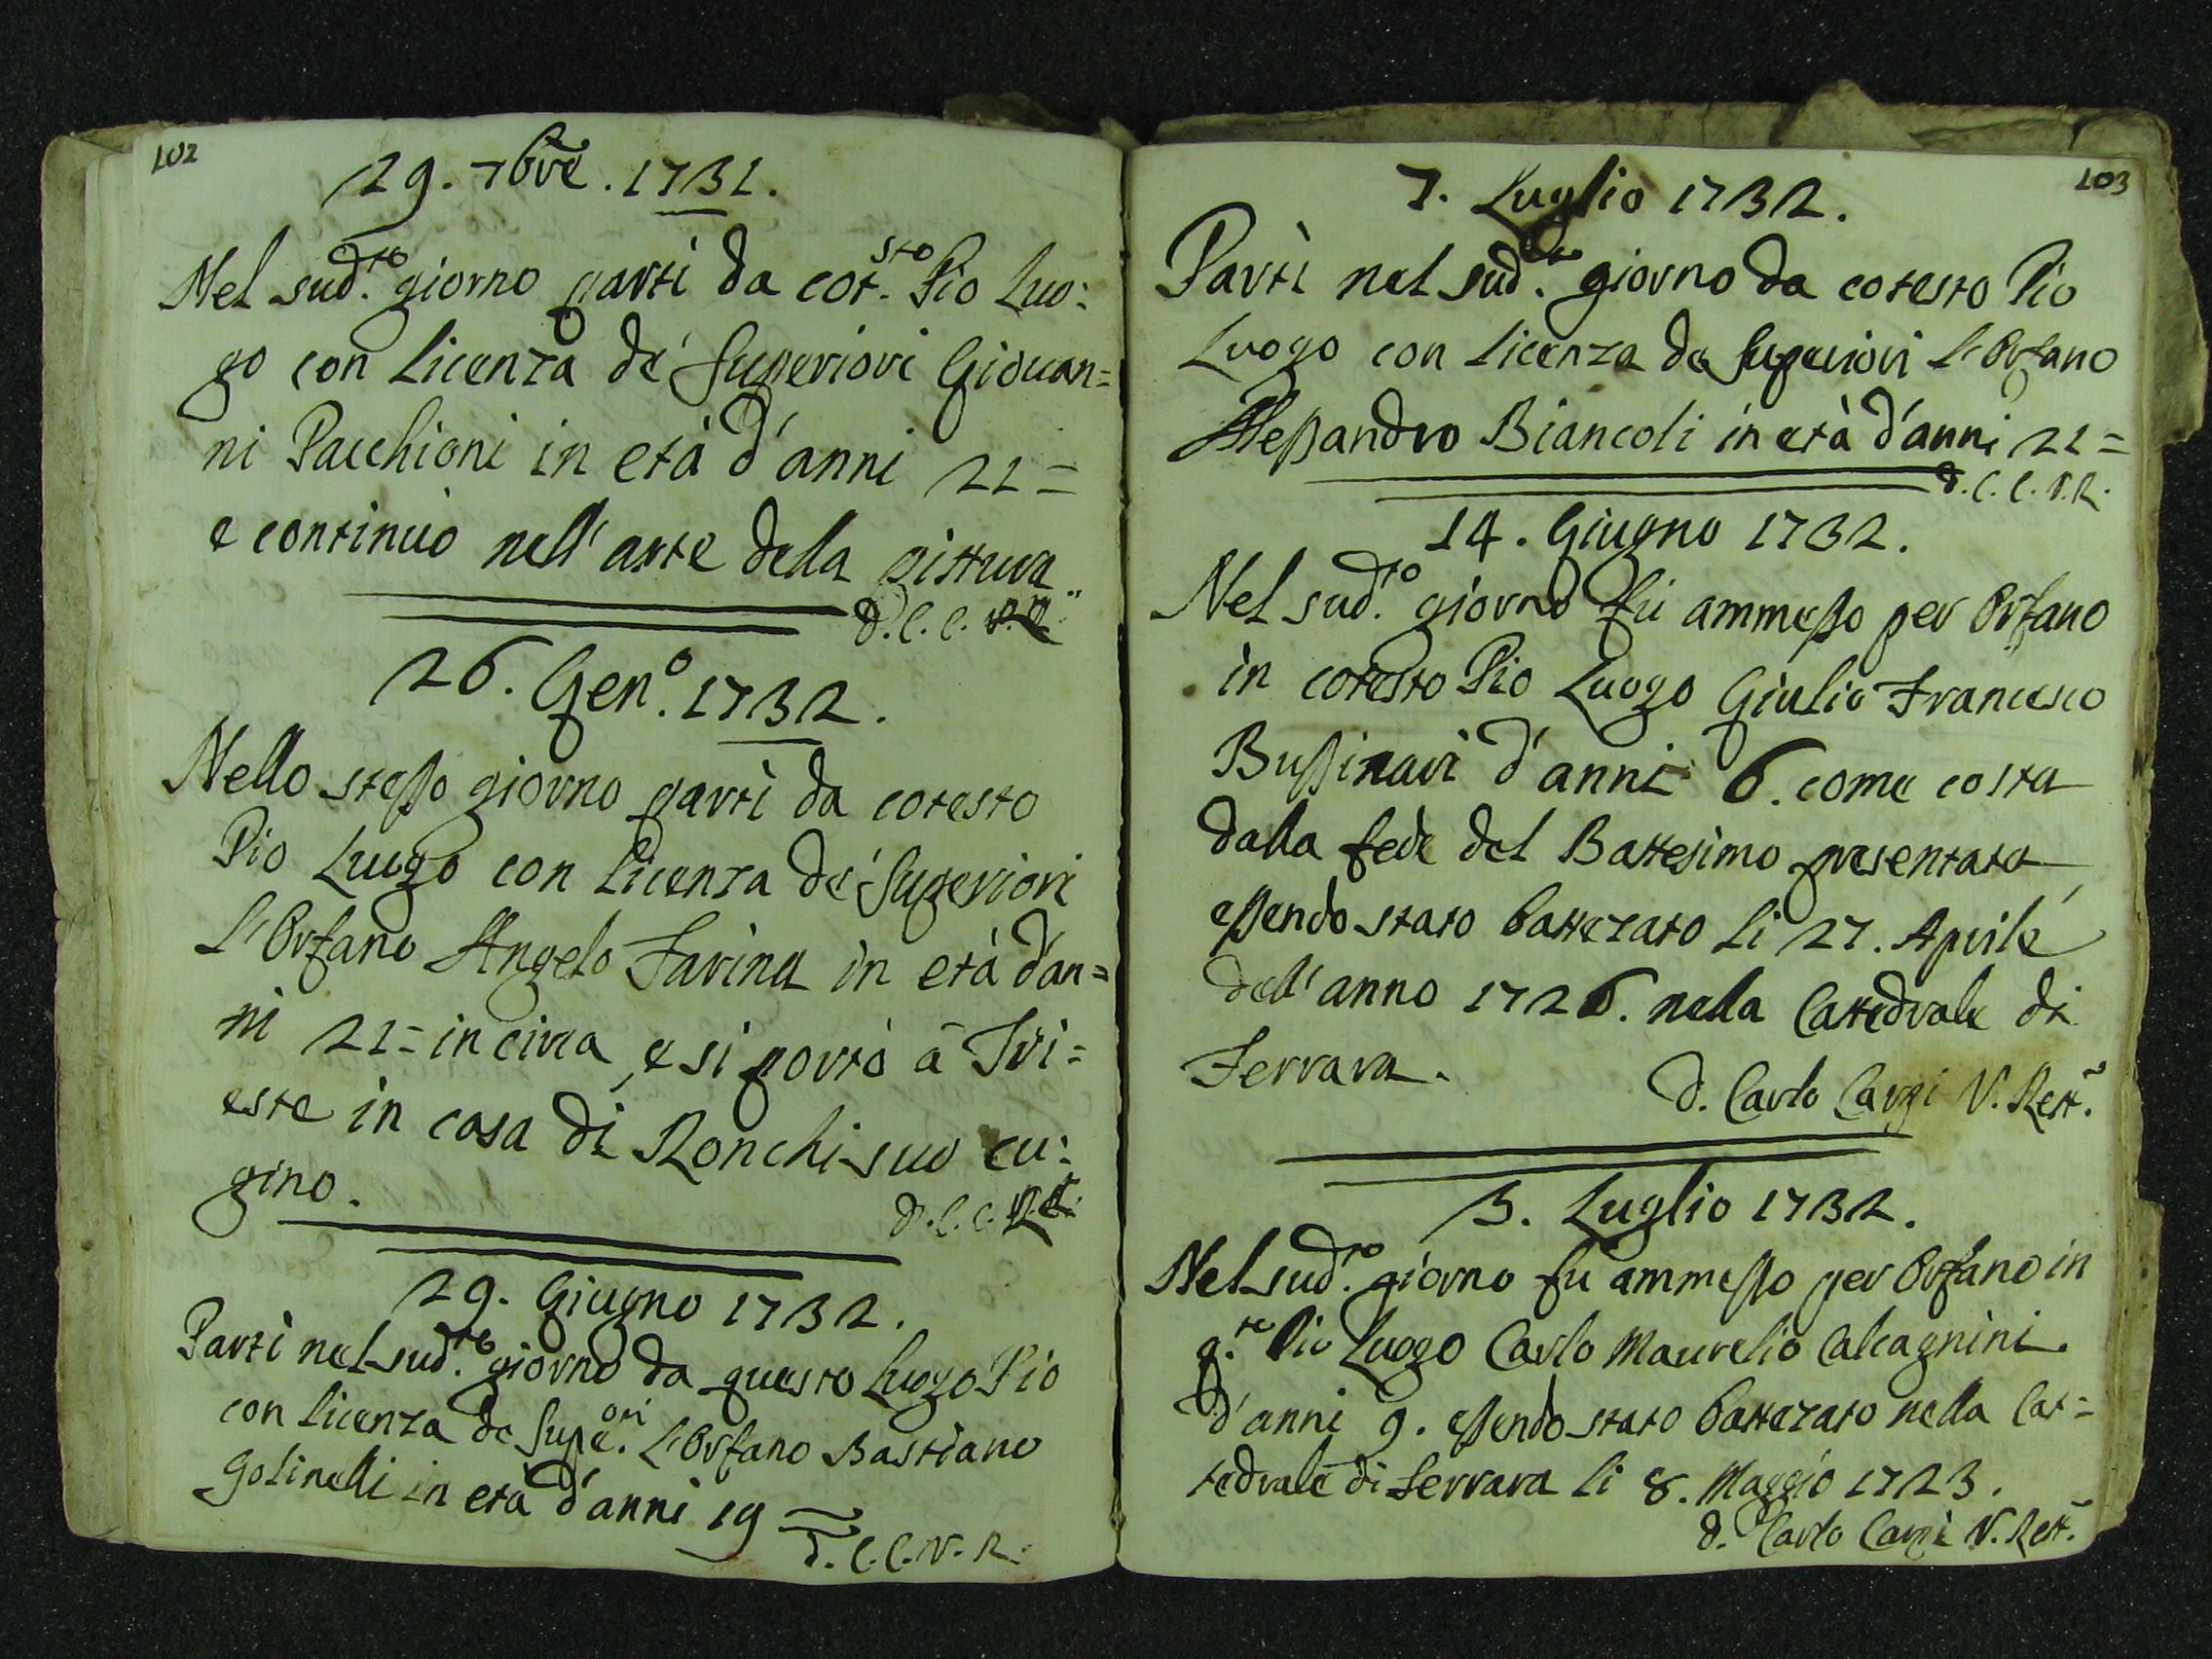 102
29. 7bre. 1731.
Nel sud.to giorno partì da cot.sto Pio Luo:
go con licenza de' Superiori Giouan=
ni Pacchioni in età d'anni 21=
e continuò nell'arte della pittura
d. C. C.
26. Gen.o 1732.
Nello stesso giorno partì da cotesto
Pio Luogo con licenza de' Superiori
l'Orfano Angelo Farina in età d'an=
ni 21= in circa, e si portò à Tri=
este in casa di Ronchi suo cu:
gino.
d. C. C.
29. Giugno 1732.
Partì nel sud.to giorno da questo Luogo Pio
con licenza de Supe.ori l'Orfano Bastiano
Golinelli in età d'anni 19
d. C. C. V. R.
103
7. Luglio 1732.
Partì nel sud.to giorno da cotesto Pio
Luogo con licenza de Superiori l'Orfano
Alessandro Biancoli in età d'anni 21=
d. C. C. V. R.
14. Giugno 1732.
Nel sud.to giorno fù ammesso per Orfano
in cotesto Pio Luogo Giulio Francesco
Bussinari d'anni 6. come costa
dalla fede del Battesimo presentata,
essendo stato battezato li 27. Aprile
dell'anno 1726. nella Cattedrale di
Ferrara.
d. Carlo Carpi V. Rett.
3. Luglio 1732.
Nel sud.to giorno fù ammesso per Orfano in
q.to Pio Luogo Carlo Maurelio Calcagnini
d'anni 9. essendo stato battezato nella Cat=
tedrale di Ferrara li 8. Maggio 1723.
d. Carlo Carpi V. Rett.